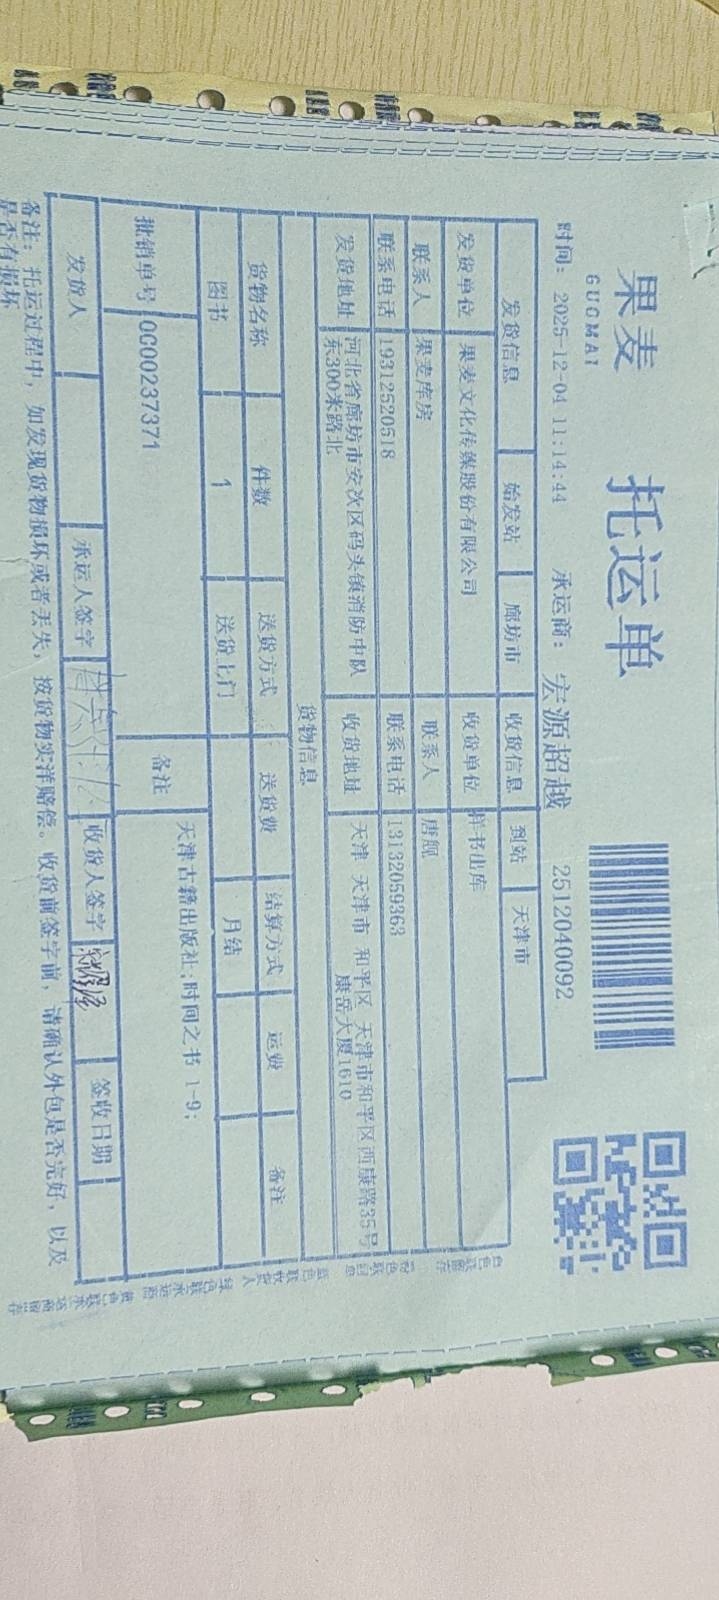 果麦
GUOMAI
托运单
时间: 2025-12-04 11:14:44 承运商: 宏源超越 2512040092
发货信息 始发站 廊坊市 收货信息 到站 天津市
发货单位 果麦文化传媒股份有限公司 收货单位 样书出库
联系人 果麦库房 联系人 唐舰
联系电话 19312520518 联系电话 13132059363
发货地址 河北省廊坊市安次区码头镇消防中队东300米路北 收货地址 天津 天津市 和平区 天津市和平区西康路35号康岳大厦1610
货物信息
货物名称 件数 送货方式 送货费 结算方式 运费 备注
图书 1 送货上门 月结
批销单号 0C00237371 备注 天津古籍出版社;时间之书 1-9;
发货人 承运人签字 收货人签字 签收日期
备注: 托运过程中, 如发现货物损坏或者丢失, 按货物实洋赔偿。收货前签字前, 请确认外包是否完好, 以及
是否有损坏